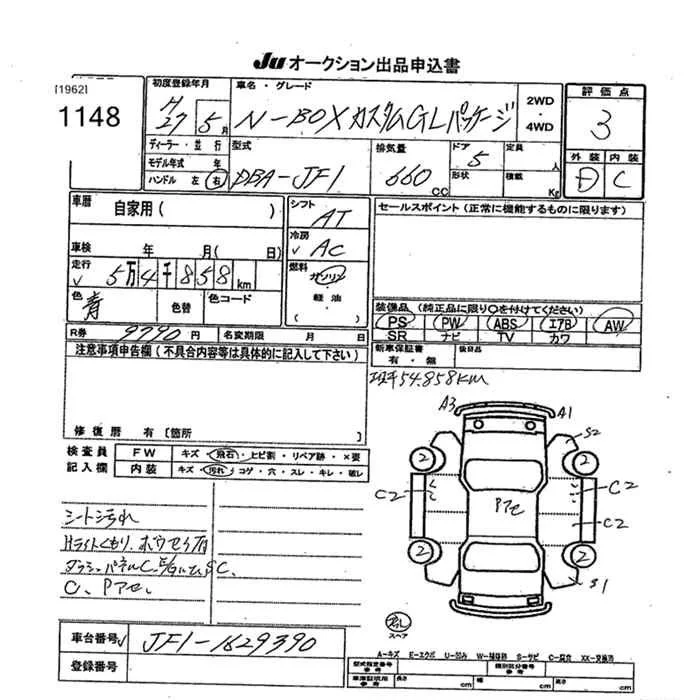 Ju オークション出品申込書
[1962]
1148
初度登録年月
H27 5月
車名・グレード
N-BOXカスタムGLパッケージ
2WD・4WD
評価点
3
ディーラー・並行
モデル年式 年
ハンドル 左 右
型式
DBA-JF1
排気量
660 CC
ドア 5
形状
定員 人
積載 Kg
外装 内装
D C
車歴
自家用( )
シフト
AT
セールスポイント(正常に機能するものに限ります)
車検 年 月( 日)
冷房
AC
走行
5万4千858km
燃料
ガソリン
軽油
( )
色
青
色替
色コード
装備品(純正品に限り○を付けてください)
PS PW ABS エアB AW
SR ナビ TV カワ
R券 9790円
名変期限 月 日
新車保証書
有・無
後日品
注意事項申告欄(不具合内容等は具体的に記入して下さい)
54.858KM
修復歴 有[箇所 ]
検査員記入欄
FW キズ・飛石・ヒビ割・リペア跡・×要
内装 キズ・汚れ・コゲ・穴・スレ・キレ・破レ
A3 A1
S2
2 2
C2 C2
Pアセ
C2
2 2
S1
シート汚れ
Hライトくもり、
C、Pアセ、
スペア
車台番号
JF1-1629390
登録番号
A-キズ E-エクボ U-凹み W-補修跡 S-サビ C-腐食 XX-交換済
型式指定番号
参考
類別区分番号
参考
車庫証明用
参考
長さ cm
幅 cm
高さ cm